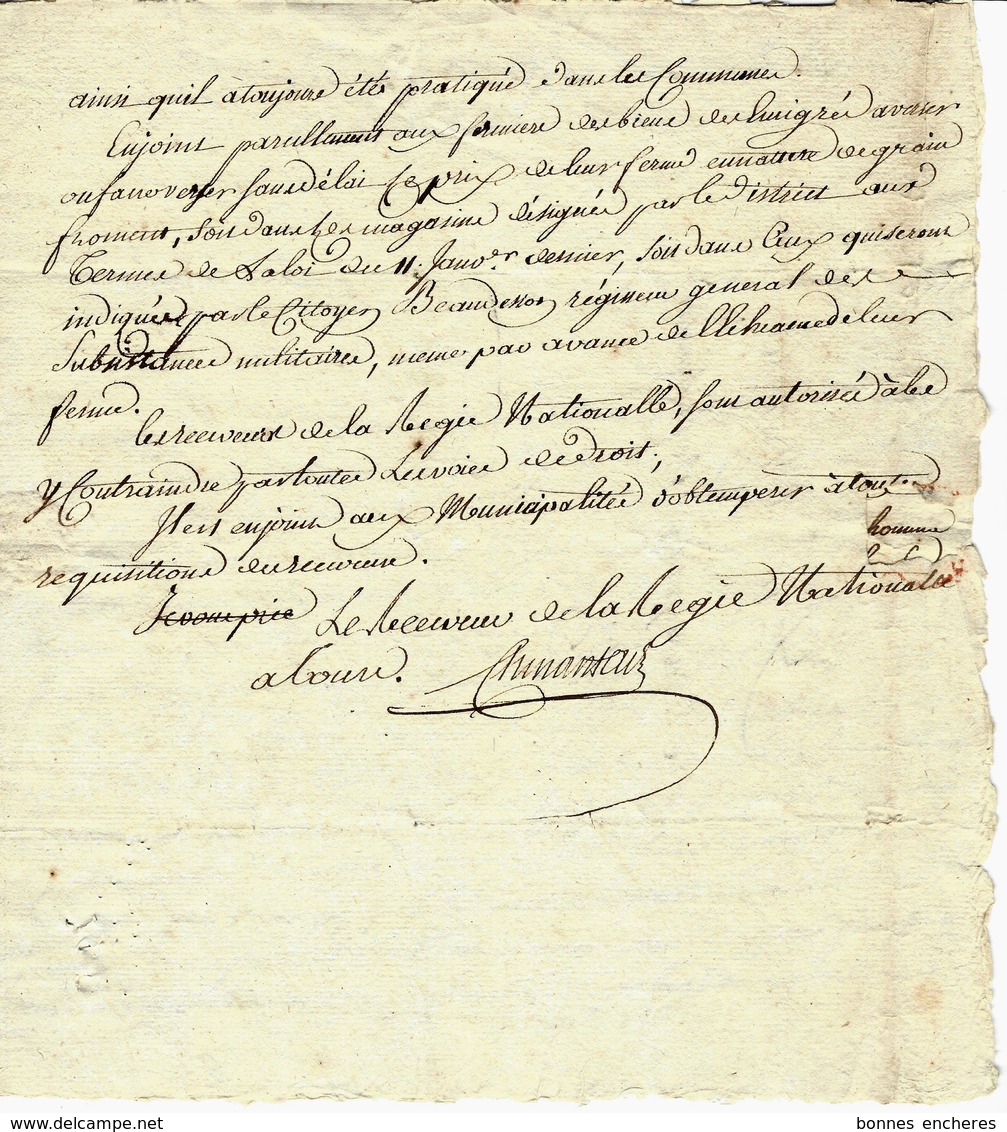 ainsi quil atoujours été pratiqué dans les Communes.
Enjoint pareillement aux fermiers des biens des Emigrés averser
ou fairverser sans délai le prix de leur ferme ennature de grain
froment, soit dans les magasins désignés par le District aux
Termes de La loi du 11. Janver. dernier, soit dans Ceux qui seront
indiqués par le Citoyen Beaudesson régisseur general des
Subsistances militaires, meme par avance de lEcheance de leur
ferme.
les receveurs de la Regie Nationalle, sont autorisés à les
y Contraindre par toutes les voies de Droit;
Il est enjoint aux Municipalités d'obtemperer à toutes
requisitions des receveurs.
homme
Le Receveur de la Regie Nationalle
a tours.
bonnes encheres